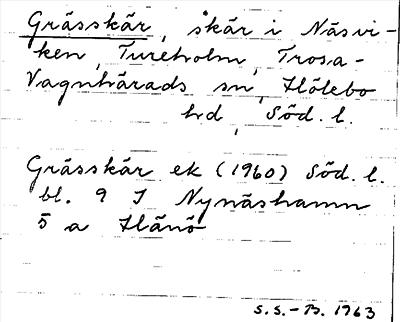 Grässkär, skär i Näsvi-
ken, Tureholm, Trosa-
Vagnhärads sn, Hölebo
hd, Söd. l.
Grässkär ek (1960) Söd. l.
bl. 9 I Nynäshamn
5 a Hånö
S.S.-B. 1963